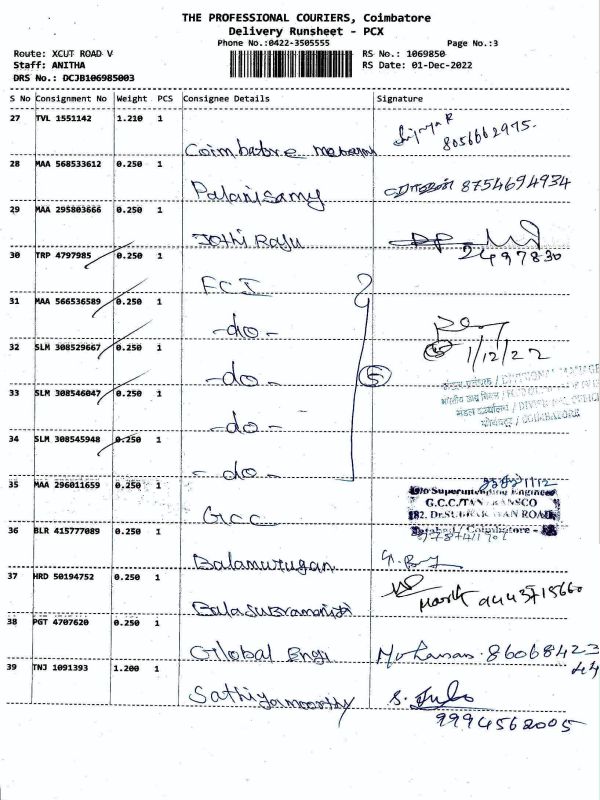 THE PROFESSIONAL COURIERS, Coimbatore
Delivery Runsheet - PCX
Phone No.:0422-3505555 Page No.:3
Route: XCUT ROAD V RS No.: 1069850
Staff: ANITHA RS Date: 01-Dec-2022
DRS No.: DCJB106985003
S No Consignment No Weight PCS Consignee Details Signature
27 TVL 1551142 1.210 1
8056662975.
Coimbatore
28 MAA 568533612 0.250 1
Palanisamy 8754694934
29 MAA 295803666 0.250 1
Jothi Raju
30 TRP 4797985 0.250 1
2497830
FCI
31 MAA 566536589 0.250 1
-do-
32 SLM 308529667 0.250 1
1/12/22
-do- 5
33 SLM 308546047 0.250 1
DIVISIONAL MANAGER
COIMBATORE
-do-
34 SLM 308545948 0.250 1
-do-
35 MAA 296011659 0.250 1
O/o Superintending Engineer
G.C.C./TANTRANSCO
GCC
36 BLR 415777089 0.250 1
Balamurugan
37 HRD 50194752 0.250 1
Balasubramani
38 PGT 4707620 0.250 1
Global Engi Mohanan. 86068423
44
39 TNJ 1091393 1.200 1
Sathiyamoorthy
9994562005